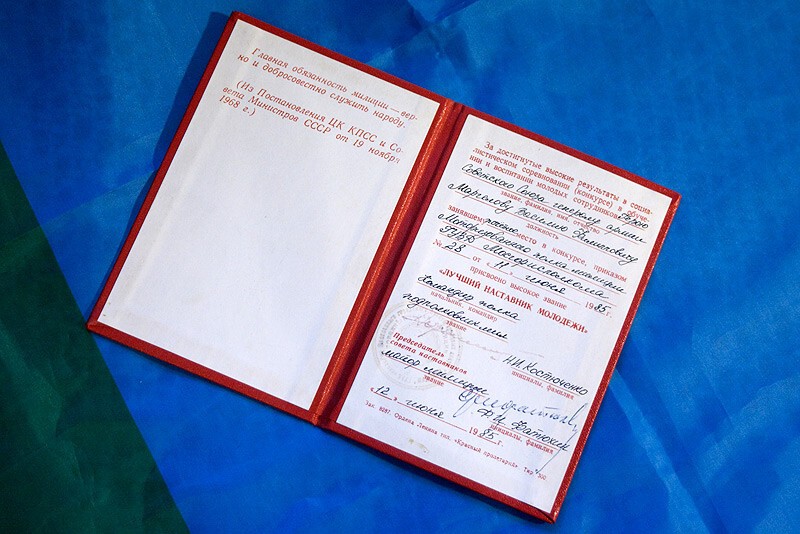 Главная обязанность милиции — вер-
но и добросовестно служить народу.
(Из Постановления ЦК КПСС и Со-
вета Министров СССР от 19 ноября
1968 г.)
За достигнутые высокие результаты в социа-
листическом соревновании (конкурсе) в обуче-
нии и воспитании молодых сотрудников Герою
Советского Союза генералу армии
звание, фамилия, имя, отчество
Маргелову Василию Филипповичу
должность
занявшему место в конкурсе, приказом
Моторизованного полка милиции
ГУВД Мосгорисполкома
№ 23 от « 11 » июня 1985 г.
присвоено высокое звание
«ЛУЧШИЙ НАСТАВНИК МОЛОДЕЖИ»
Командир полка
начальник, командир
подполковник
звание
Н.И. Костюченко
инициалы, фамилия
Председатель
совета наставников
майор милиции
звание
инициалы, фамилия
« 12 » июня 1985 г.
Зак. Ордена Ленина тип. «Красный пролетарий» Тир.